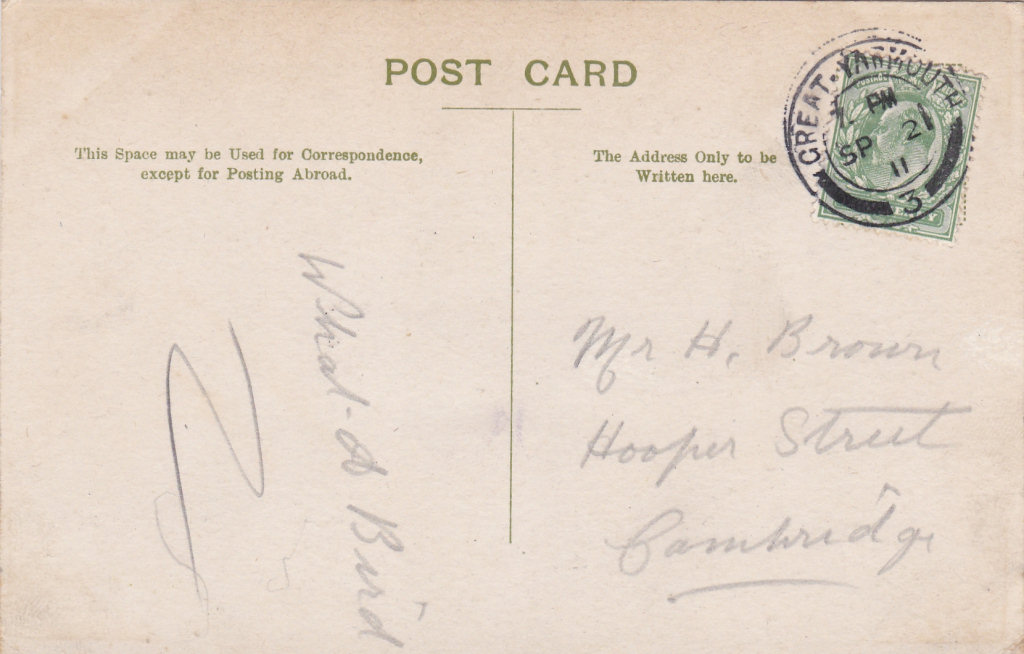 POST CARD
This Space may be Used for Correspondence,
except for Posting Abroad.
The Address Only to be
Written here.
GREAT. YARMOUTH
7. PM
SP 21
11
3
What - A Bird
Mr H. Brown
Hooper Street
Cambridge